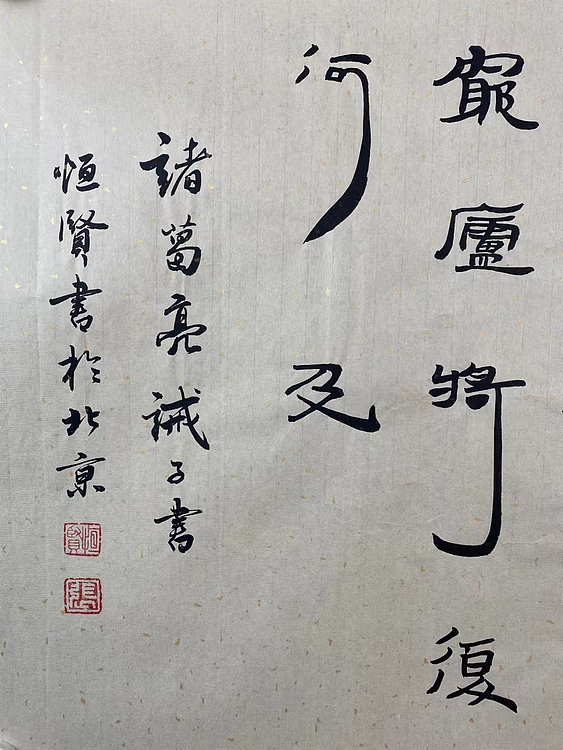 窮廬將復
何及
諸葛亮誡子書
恒賢書於北京
恒賢
張